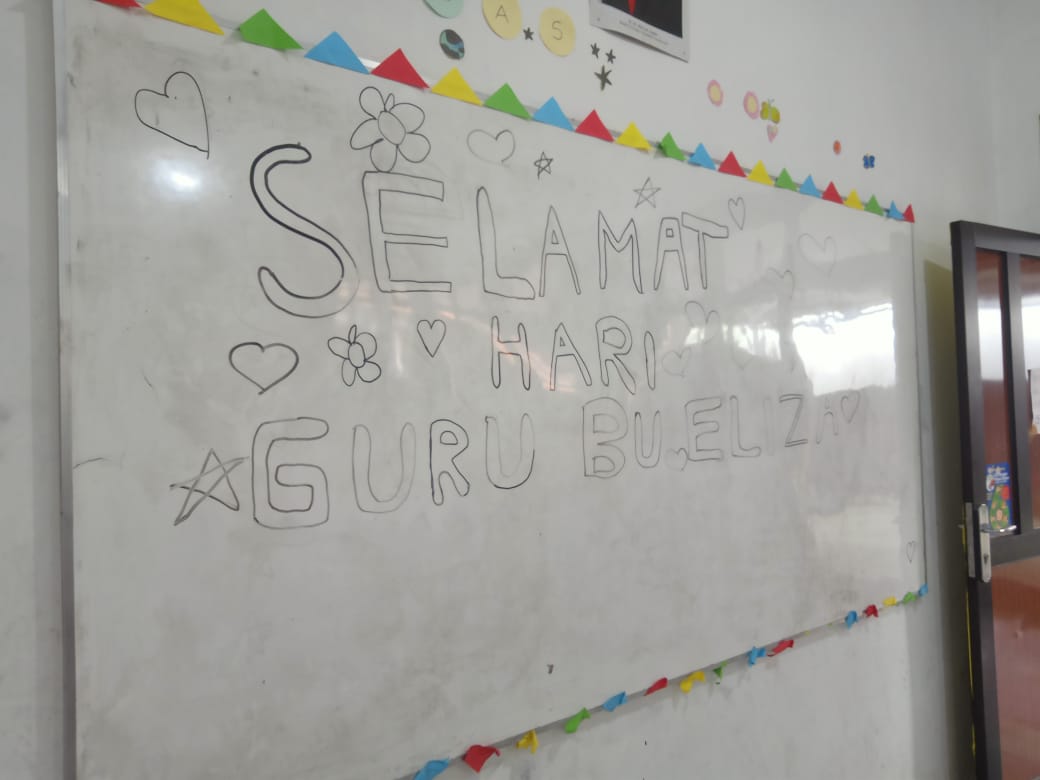 A S
SELAMAT
HARI
GURU BU ELIZA